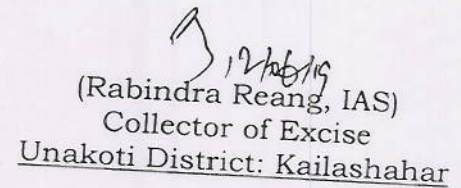 (Rabindra Reang, IAS)
Collector of Excise
Unakoti District: Kailashahar